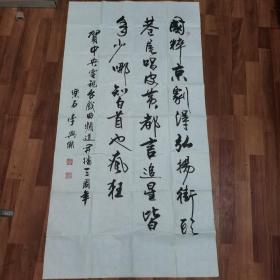 國粹京劇得弘揚街頭
巷尾唱皮黄都言追星皆
年少哪知白首也瘋狂
賀中央電視台戲曲頻道開播周年
李興